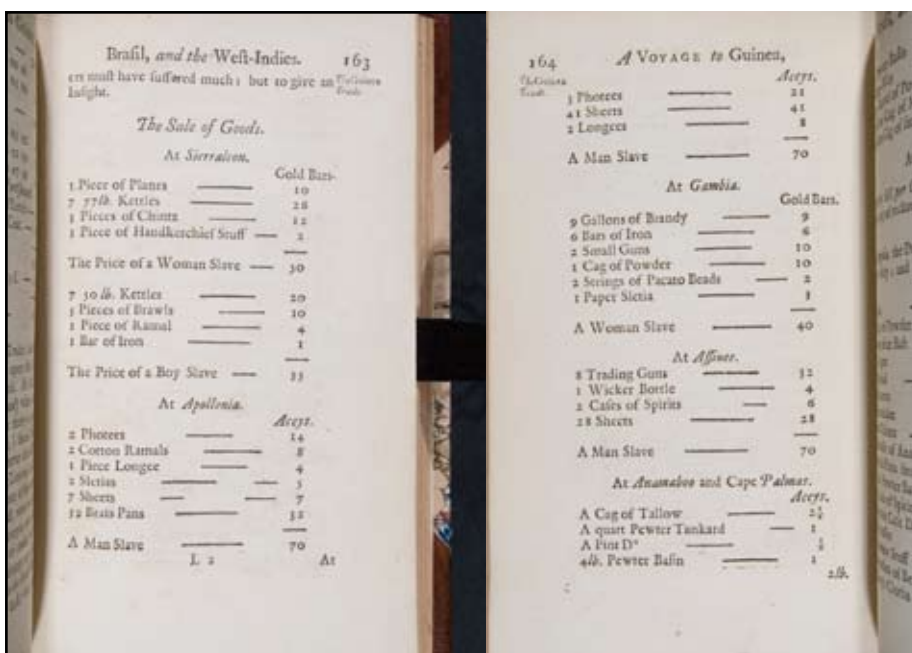 Braſil, and the Weſt-Indies. 163
ers muſt have ſuffered much; but to give an The Guinea
Inſight. Trade.
The Sale of Goods.
At Sierraleon.
Gold Bars.
1 Piece of Planes —— 10
7 77lb. Kettles —— 26
3 Pieces of Chintz —— 12
1 Piece of Handkerchief Stuff — 2
The Price of a Woman Slave — 50
7 50 lb. Kettles —— 20
5 Pieces of Brawls —— 10
1 Piece of Ramal —— 4
1 Bar of Iron —— 1
The Price of a Boy Slave — 35
At Apollonia.
Aceys.
2 Photees —— 14
2 Cotton Ramals —— 8
1 Piece Longee —— 4
2 Sletias —— — 5
7 Sheets — — 7
32 Braſs Pans —— 32
A Man Slave —— 70
L 2 At
164 A VOYAGE to Guinea,
The Guinea Aceys.
Trade.
3 Photees —— 21
41 Sheets —— 41
2 Longees —— 8
A Man Slave —— 70
At Gambia.
Gold Bars.
9 Gallons of Brandy —— 9
6 Bars of Iron —— 6
2 Small Guns —— 10
1 Cag of Powder —— 10
2 Strings of Pacato Beads — 2
1 Paper Sletia —— 3
A Woman Slave —— 40
At Aſſinee.
8 Trading Guns —— 32
1 Wicker Bottle —— 4
2 Caſes of Spirits — 6
28 Sheets —— 28
A Man Slave —— 70
At Anamaboo and Cape Palmas.
Aceys.
A Cag of Tallow —— 2½
A quart Pewter Tankard — 1
A Pint Do —— ½
4lb. Pewter Baſin —— 1
2lb.